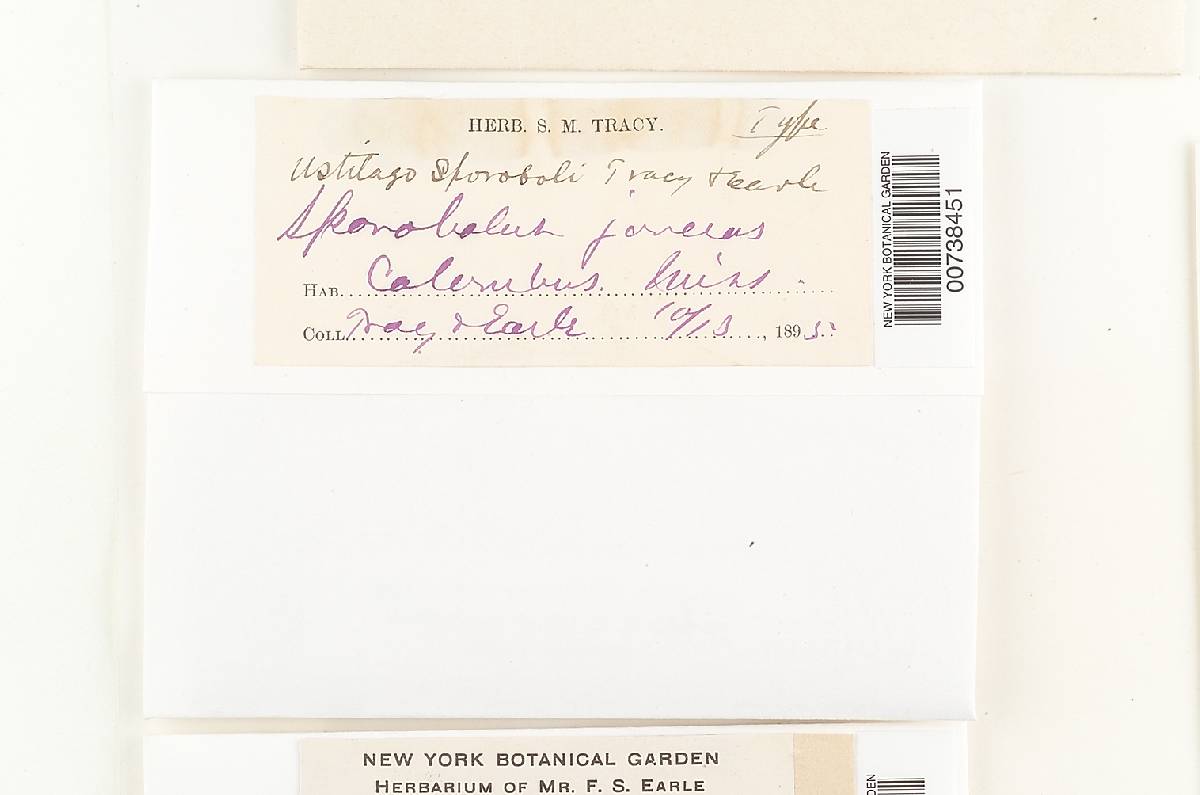 HERB. S. M. TRACY.
Type
Ustilago Sporoboli Tracy & Earle
Sporobolus junceus
HAB. Columbus. Miss.
COLL. Tracy & Earle 10/13, 1895.
NEW YORK BOTANICAL GARDEN
00738451
NEW YORK BOTANICAL GARDEN
HERBARIUM OF MR. F. S. EARLE
DEN